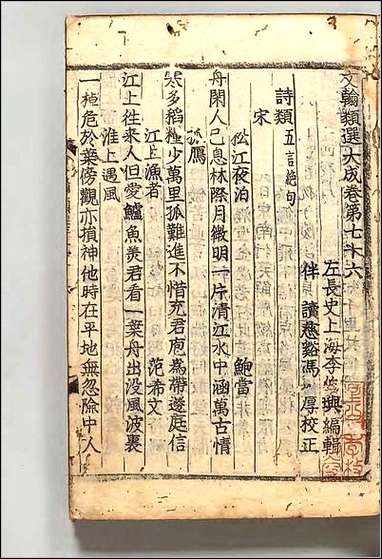 文翰類選大成卷第七十六
左長史上海李伯璵編輯
伴讀慈谿馮厚校正
詩類 五言絶句
宋
松江夜泊 鮑當
舟閑人已息林際月微明一片清江水中涵萬古情
孤鴈
天寒稻粱少萬里孤難進不惜充君庖爲帶邊庭信
江上漁者 范希文
江上徃來人但愛鱸魚羙君看一葉舟出没風波裏
淮上遇風
一棹危於葉傍觀亦損神他時在平地無忽險中人